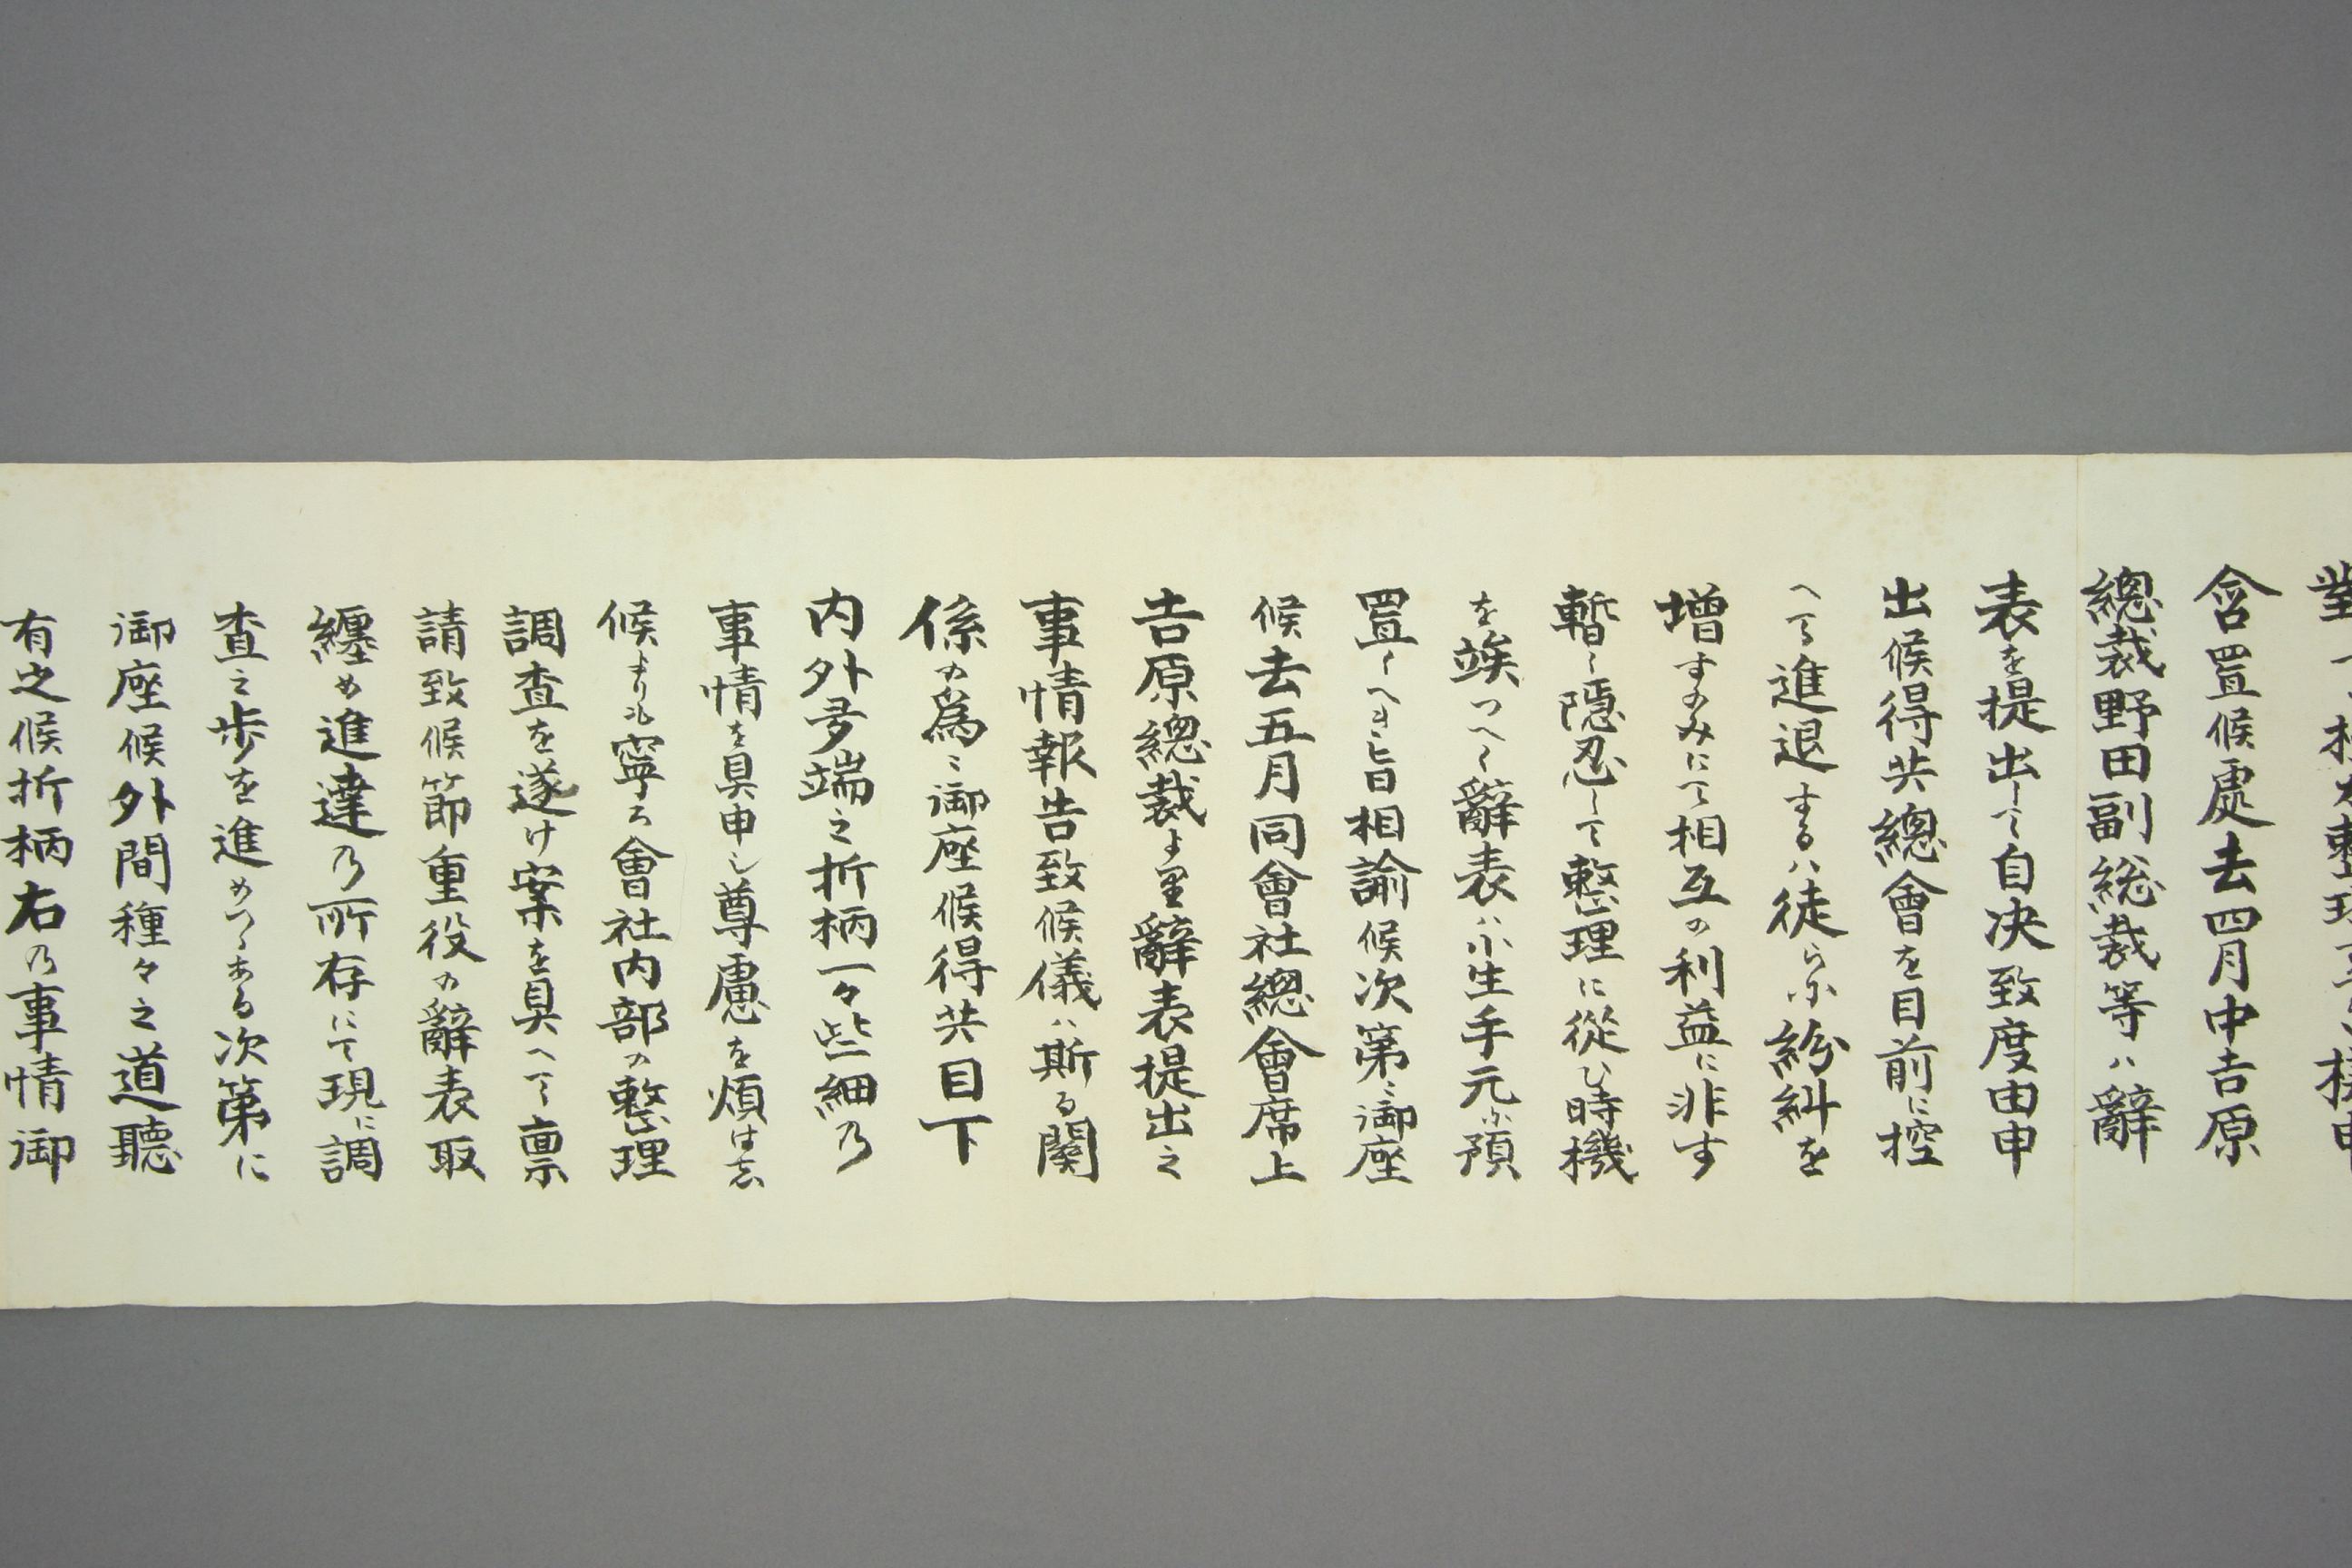 含置候處去四月中吉原
總裁野田副総裁等ハ辭
表を提出して自决致度由申
出候得共總會を目前に控
へて進退するハ徒らに紛糾を
增すのみにて相互の利益に非す
暫く隱忍して整理に從ひ時機
を竢つへく辭表ハ小生手元に預
置くへき旨相諭候次第ニ御座
候去五月同會社總會席上
吉原總裁より辭表提出之
事情報告致候儀ハ斯る關
係の為ニ御座候得共目下
内外多端之折柄一々些細乃
事情を具申し尊慮を煩はし
候よりも寧ろ會社内部の整理
調査を遂け案を具へて禀
請致候節重役の辭表取
纏め進達乃所存にて現に調
查之歩を進めつゝある次第に
御座候外間種々之道聽
有之候折柄右乃事情御